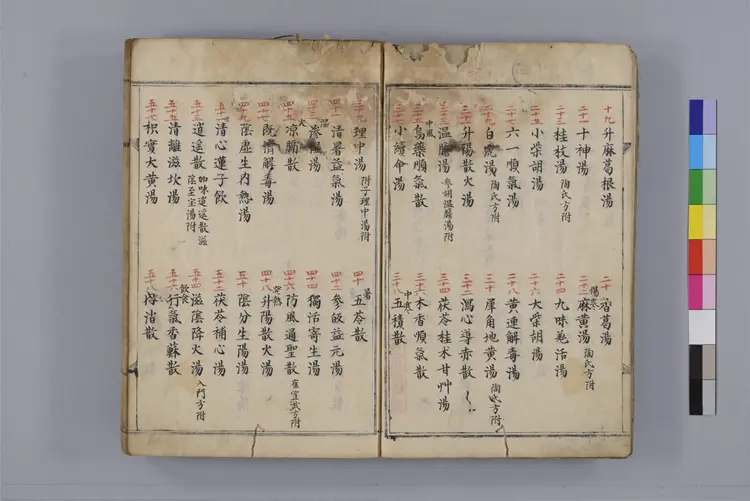 十九 升麻葛根湯 二十 香葛湯
二十一 十神湯 傷寒 二十二 麻黃湯 陶氏方附
二十三 桂枝湯 陶氏方附 二十四 九味羌活湯
二十五 小柴胡湯 二十六 大柴胡湯
二十七 六一順氣湯 二十八 黃連解毒湯
二十九 白虎湯 陶氏方附 三十 犀角地黃湯 陶氏方附
三十一 升陽散火湯 三十二 瀉心導赤散
三十三 温膽湯 參胡温膽湯附 三十四 茯苓桂木甘艸湯
中風 三十五 烏藥順氣散 三十六 木香順氣散
三十七 小續命湯 中寒 三十八 五積散
三十九 理中湯 附子理中湯附 暑 四十 五苓散
四十一 清暑益氣湯 四十二 參皈益元湯
濕 四十三 滲濕湯 四十四 獨活寄生湯
火 四十五 凉膈散 四十六 防風通聖散 崔宣武方附
四十七 既濟解毒湯 四十八 升陽散火湯
四十九 蔭虛生內熱湯 五十 蔭分生陽湯
五十一 清心蓮子飮 五十二 茯苓補心湯
五十三 逍遙散 加味逍遙散滋
蔭至宝湯附 五十四 滋蔭降火湯 入門方附
五十五 清離滋坎湯 飮食 五十六 行氣香蘇散
五十七 枳實大黃湯 五十八 內消散